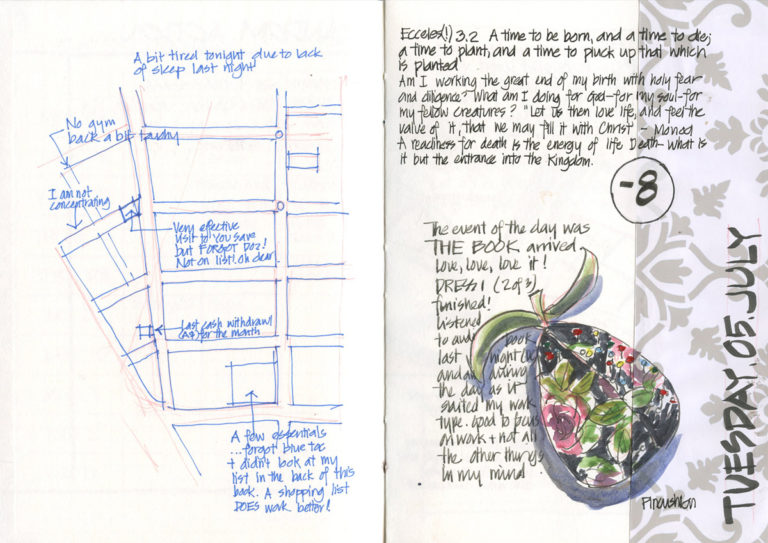 A bit tired tonight due to lack
of sleep last night
No gym
back a bit touchy
I am not
concentrating
Very effective
visit to You Save
but FORGOT DOZ!
Not on list! oh dear
Last cash withdrawl
for the month
A few essentials
...forgot blue tac
+ didn't look at my
list in the back of this
book. A shopping list
DOES work better!
Eccles(!) 3.2 A time to be born, and a time to die;
a time to plant, and a time to pluck up that which
is planted
Am I working the great end of my birth with holy fear
and diligence? What am I doing for God-for my soul-for
my fellow creatures? "Let Us then love life, and feel the
value of it, that we may fill it with Christ - Monod
A readiness for death is the energy of life Death - what is
it but the entrance into the Kingdom.
-8
The event of the day was
THE BOOK arrived
love, love, love it!
DRESS 1 (2 of 3)
finished!
listened
to book
last night
and during
the day as it
suited my work
type. Good to focus
on work + not all
the other things
in my mind
Pincushion
TUESDAY.05.JULY